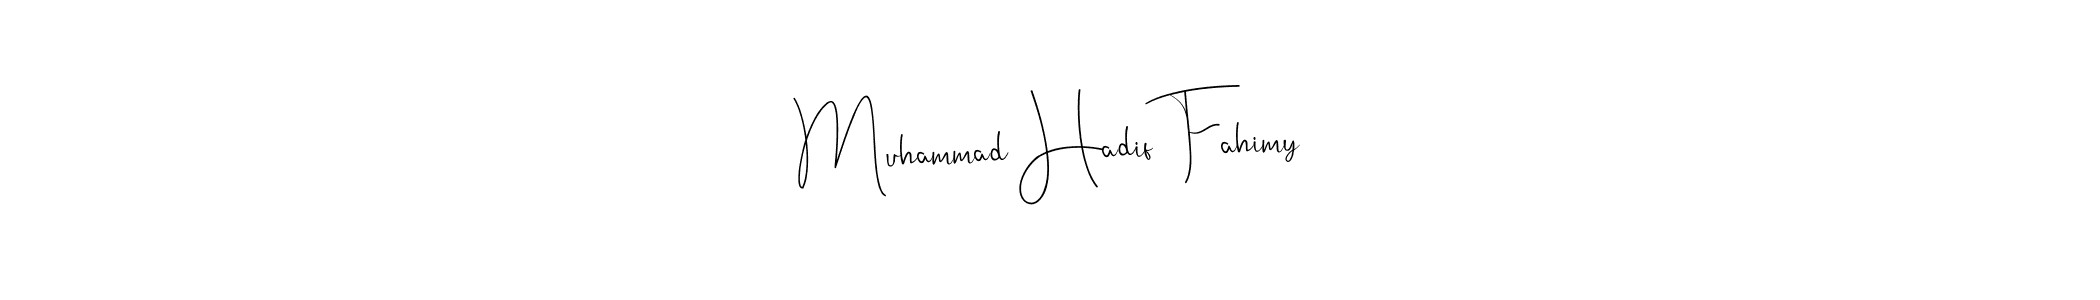 Muhammad Hadif Fahimy